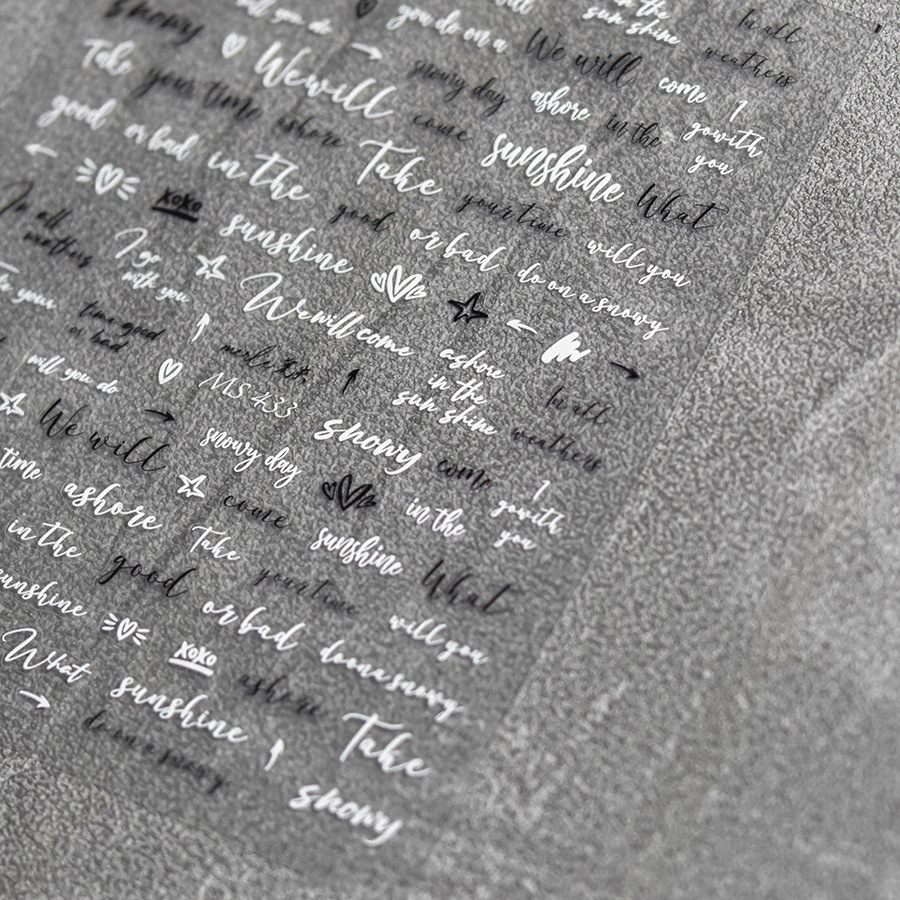 snowy
will you do
you do on a
in the
sun shine
In all
weathers
Take
We will
snowy day
We will
come
I
go with
you
your time
ashore
come
ashore
in the
good
or bad
in the
Take
sunshine
What
xoxo
good
your time
will you
In all
sunshine
or bad
do on a snowy
I go
with you
We will come
your
time good
or bad
merlettt
ashore
in the
sun shine
In all
weathers
will you do
MS-433
snowy
come
I
go with
you
We will
snowy day
in the
time
ashore
come
sunshine
What
in the
Take
good
your time
will you
sunshine
or bad
do on a snowy
What
xoxo
ashore
sunshine
Take
do on a snowy
snowy